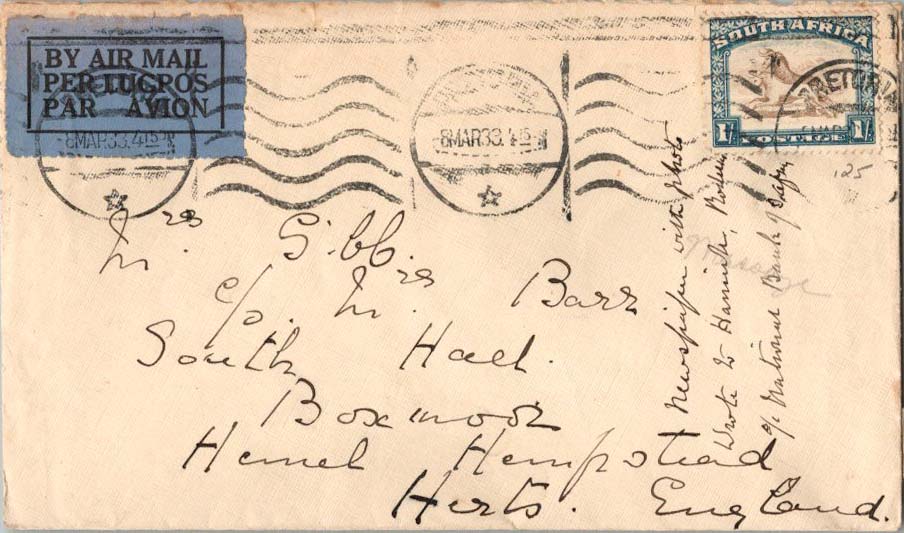 BY AIR MAIL
PER LUGPOS
PAR AVION
SOUTH AFRICA
1/- POSTAGE 1/-
PRETORIA
8 MAR 33. 4 15 PM
8 MAR 33. 4 15 PM
125
Mrs Gibb.
c/o. Mrs Barr
South Hall.
Boxmoor
Hemel Hempstead
Herts. England.
Newspaper with photo
Wrote to
c/o National Bank of